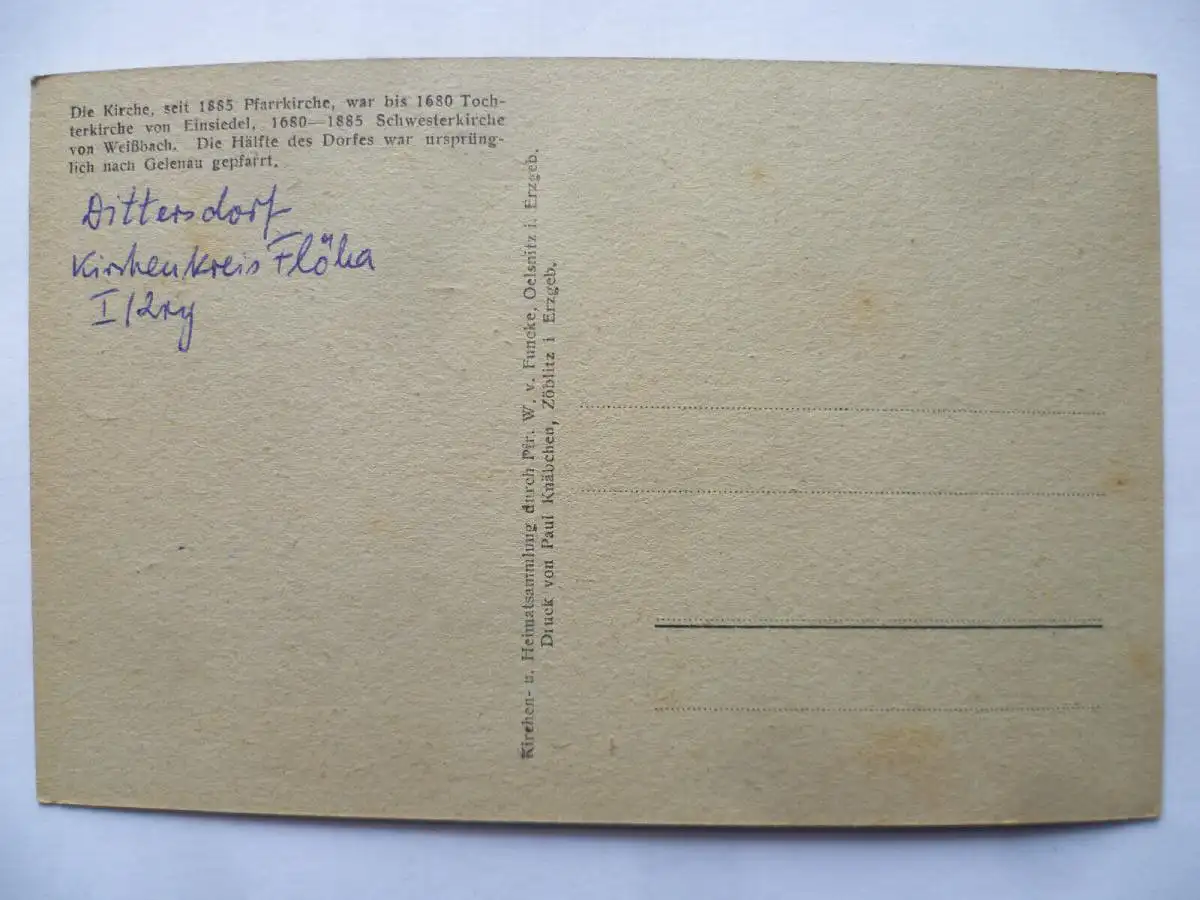 Die Kirche, seit 1885 Pfarrkirche, war bis 1680 Toch-
terkirche von Einsiedel, 1680—1885 Schwesterkirche
von Weißbach. Die Hälfte des Dorfes war ursprüng-
lich nach Gelenau gepfarrt.
Dittersdorf
Kirchenkreis Flöha
Kirchen- u. Heimatsammlung durch Pfr. W. v. Funcke, Oelsnitz i. Erzgeb.
Druck von Paul Knäbchen, Zöblitz i Erzgeb.